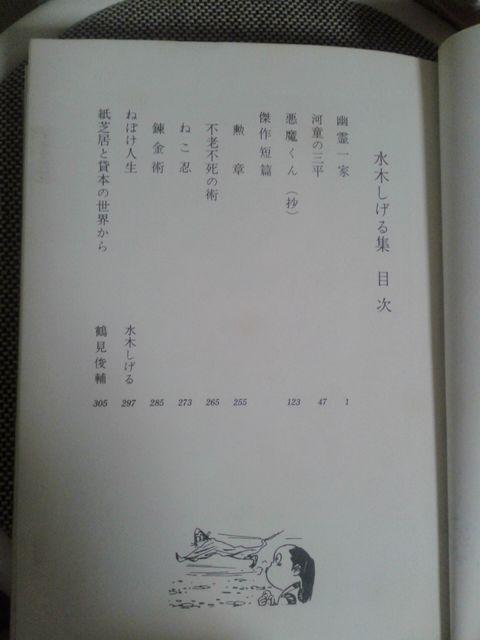 水木しげる集 目次
幽霊一家 1
河童の三平 47
悪魔くん(抄) 123
傑作短篇
勲章 255
不老不死の術 265
ねこ忍 273
錬金術 285
ねぼけ人生 水木しげる 297
紙芝居と貸本の世界から 鶴見俊輔 305